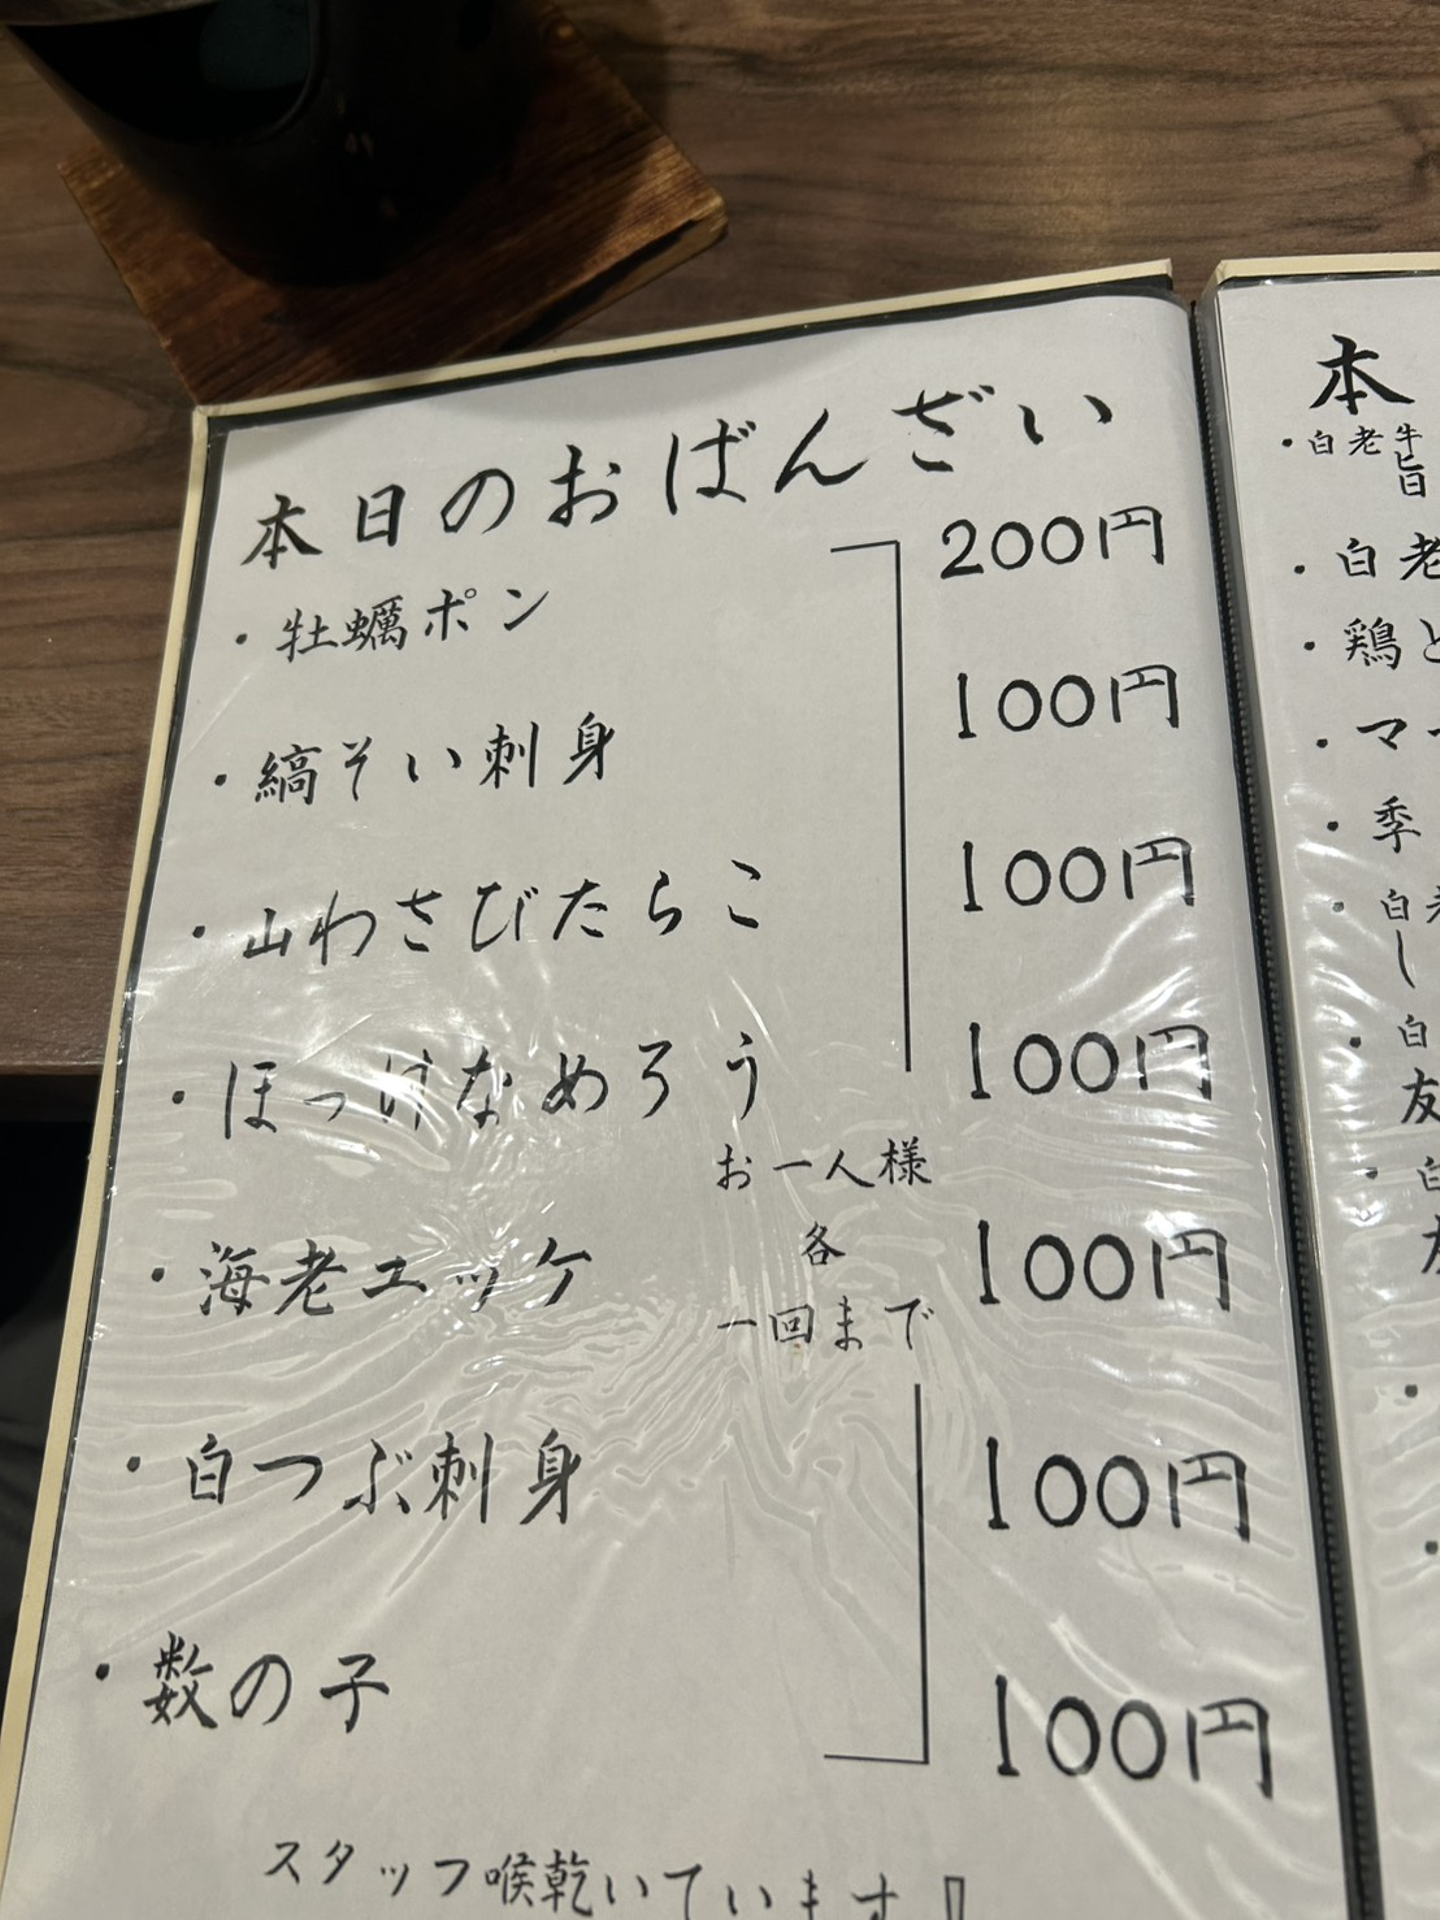 本日のおばんざい
・牡蠣ポン 200円
・縞そい刺身 100円
・山わさびたらこ 100円
・ほっけなめろう 100円
お一人様
各
一回まで
・海老エッケ 100円
・白つぶ刺身 100円
・数の子 100円
スタッフ喉乾いています!!
本
・白老牛旨
・白老
・鶏と
・マ
・季
・白老
し
・白
友